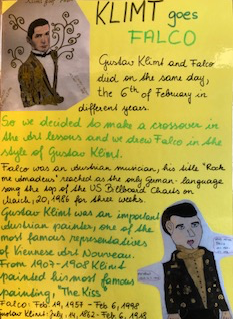 KLIMT goes
FALCO
Gustav Klimt and Falco
died on the same day,
the 6th of February in
different years.
So we decided to make a crossover in
the Art lessons and we drew Falco in the
style of Gustav Klimt.
Falco was an Austrian musician, his title "Rock
me Amadeus" reached as the only German-language
song the top of the US Billboard Charts on
March, 20, 1986 for three weeks.
Gustav Klimt was an important
Austrian painter, one of the
most famous representatives
of Viennese Art Nouveau.
From 1907-1908 Klimt
painted his most famous
painting, "The Kiss"
Falco: Feb. 19, 1957 - Feb 6, 1998
Gustav Klimt: July, 14, 1862 - Feb. 6, 1918